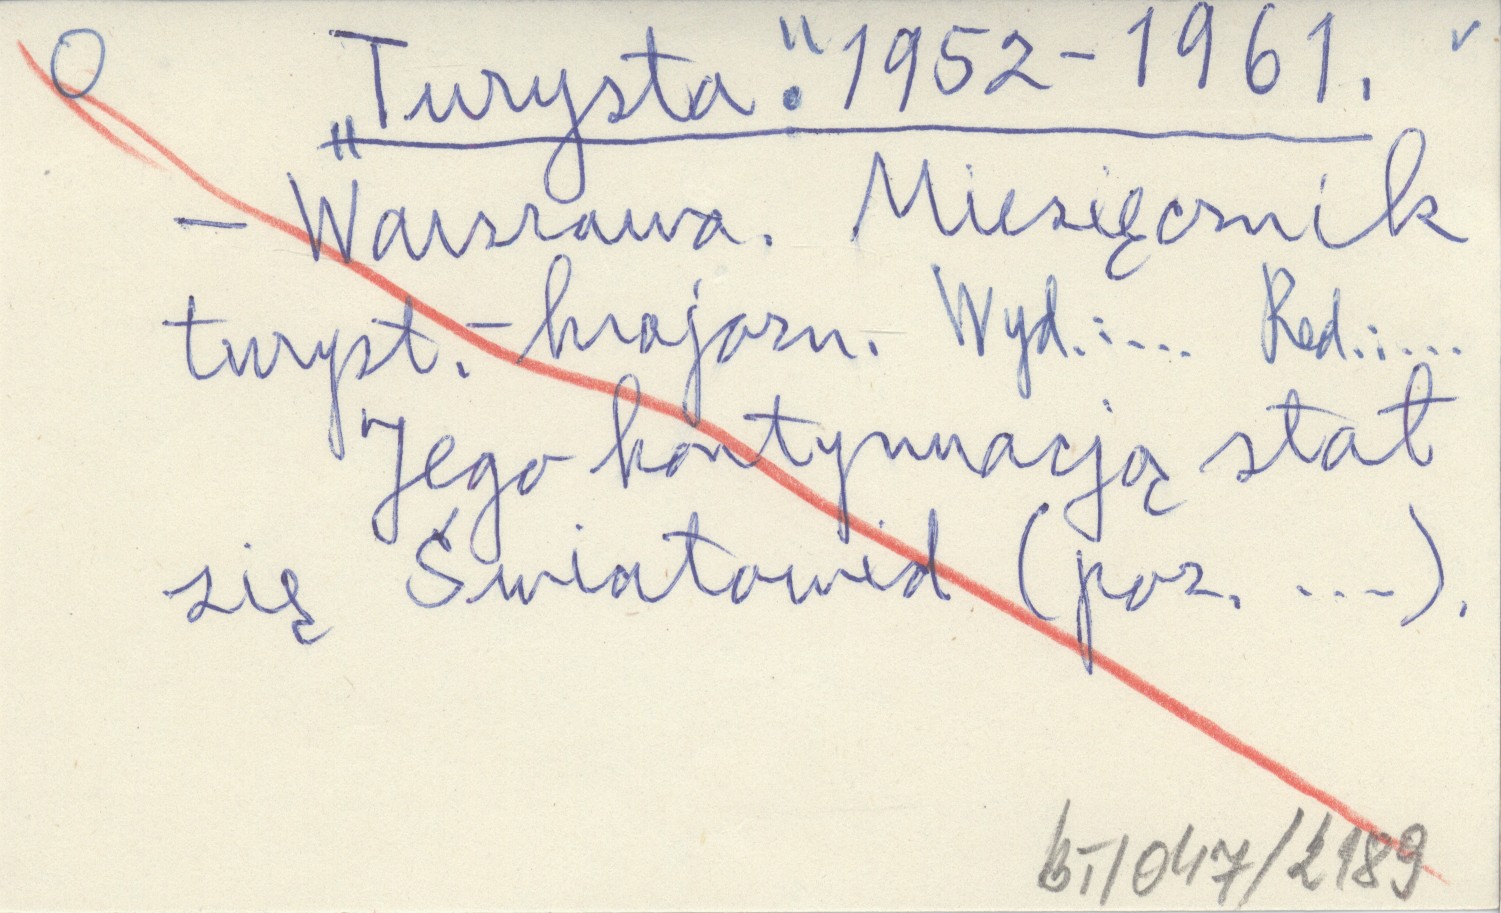 O „Turysta". 1952-1961.
- Warszawa. Miesięcznik
turyst.-krajozn. Wyd.:... Red.:...
Jego kontynuacją stał
się Światowid (poz. ...).
bT/047/2189